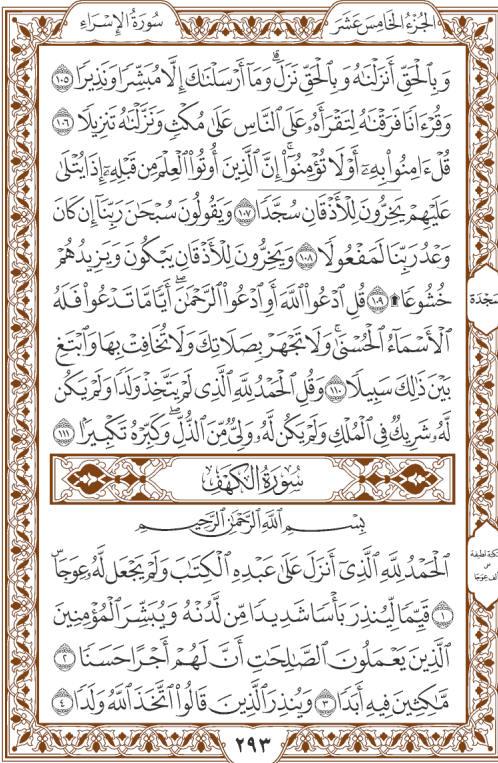 الجُزْءُ الخَامِسَ عَشَرَ
سُورَةُ الإِسْرَاءِ
وَبِٱلْحَقِّ أَنزَلْنَٰهُ وَبِٱلْحَقِّ نَزَلَۗ وَمَآ أَرْسَلْنَٰكَ إِلَّا مُبَشِّرًا وَنَذِيرًا ١٠٥
وَقُرْءَانًا فَرَقْنَٰهُ لِتَقْرَأَهُۥ عَلَى ٱلنَّاسِ عَلَىٰ مُكْثٍ وَنَزَّلْنَٰهُ تَنزِيلًا ١٠٦
قُلْ ءَامِنُوا۟ بِهِۦٓ أَوْ لَا تُؤْمِنُوٓا۟ۚ إِنَّ ٱلَّذِينَ أُوتُوا۟ ٱلْعِلْمَ مِن قَبْلِهِۦٓ إِذَا يُتْلَىٰ
عَلَيْهِمْ يَخِرُّونَ لِلْأَذْقَانِ سُجَّدًا ١٠٧ وَيَقُولُونَ سُبْحَٰنَ رَبِّنَآ إِن كَانَ
وَعْدُ رَبِّنَا لَمَفْعُولًا ١٠٨ وَيَخِرُّونَ لِلْأَذْقَانِ يَبْكُونَ وَيَزِيدُهُمْ
خُشُوعًا ۩ ١٠٩ قُلِ ٱدْعُوا۟ ٱللَّهَ أَوِ ٱدْعُوا۟ ٱلرَّحْمَٰنَۖ أَيًّا مَّا تَدْعُوا۟ فَلَهُ
ٱلْأَسْمَآءُ ٱلْحُسْنَىٰۚ وَلَا تَجْهَرْ بِصَلَاتِكَ وَلَا تُخَافِتْ بِهَا وَٱبْتَغِ
بَيْنَ ذَٰلِكَ سَبِيلًا ١١٠ وَقُلِ ٱلْحَمْدُ لِلَّهِ ٱلَّذِى لَمْ يَتَّخِذْ وَلَدًا وَلَمْ يَكُن
لَّهُۥ شَرِيكٌ فِى ٱلْمُلْكِ وَلَمْ يَكُن لَّهُۥ وَلِىٌّ مِّنَ ٱلذُّلِّۖ وَكَبِّرْهُ تَكْبِيرًۢا ١١١
سُورَةُ الكَهْفِ
بِسْمِ ٱللَّهِ ٱلرَّحْمَٰنِ ٱلرَّحِيمِ
ٱلْحَمْدُ لِلَّهِ ٱلَّذِىٓ أَنزَلَ عَلَىٰ عَبْدِهِ ٱلْكِتَٰبَ وَلَمْ يَجْعَل لَّهُۥ عِوَجَاۜ
١ قَيِّمًا لِّيُنذِرَ بَأْسًا شَدِيدًا مِّن لَّدُنْهُ وَيُبَشِّرَ ٱلْمُؤْمِنِينَ
ٱلَّذِينَ يَعْمَلُونَ ٱلصَّٰلِحَٰتِ أَنَّ لَهُمْ أَجْرًا حَسَنًا ٢
مَّٰكِثِينَ فِيهِ أَبَدًا ٣ وَيُنذِرَ ٱلَّذِينَ قَالُوا۟ ٱتَّخَذَ ٱللَّهُ وَلَدًا ٤
٢٩٣
سَجْدَة
سكتة لطيفة
على
ألف عِوَجَا